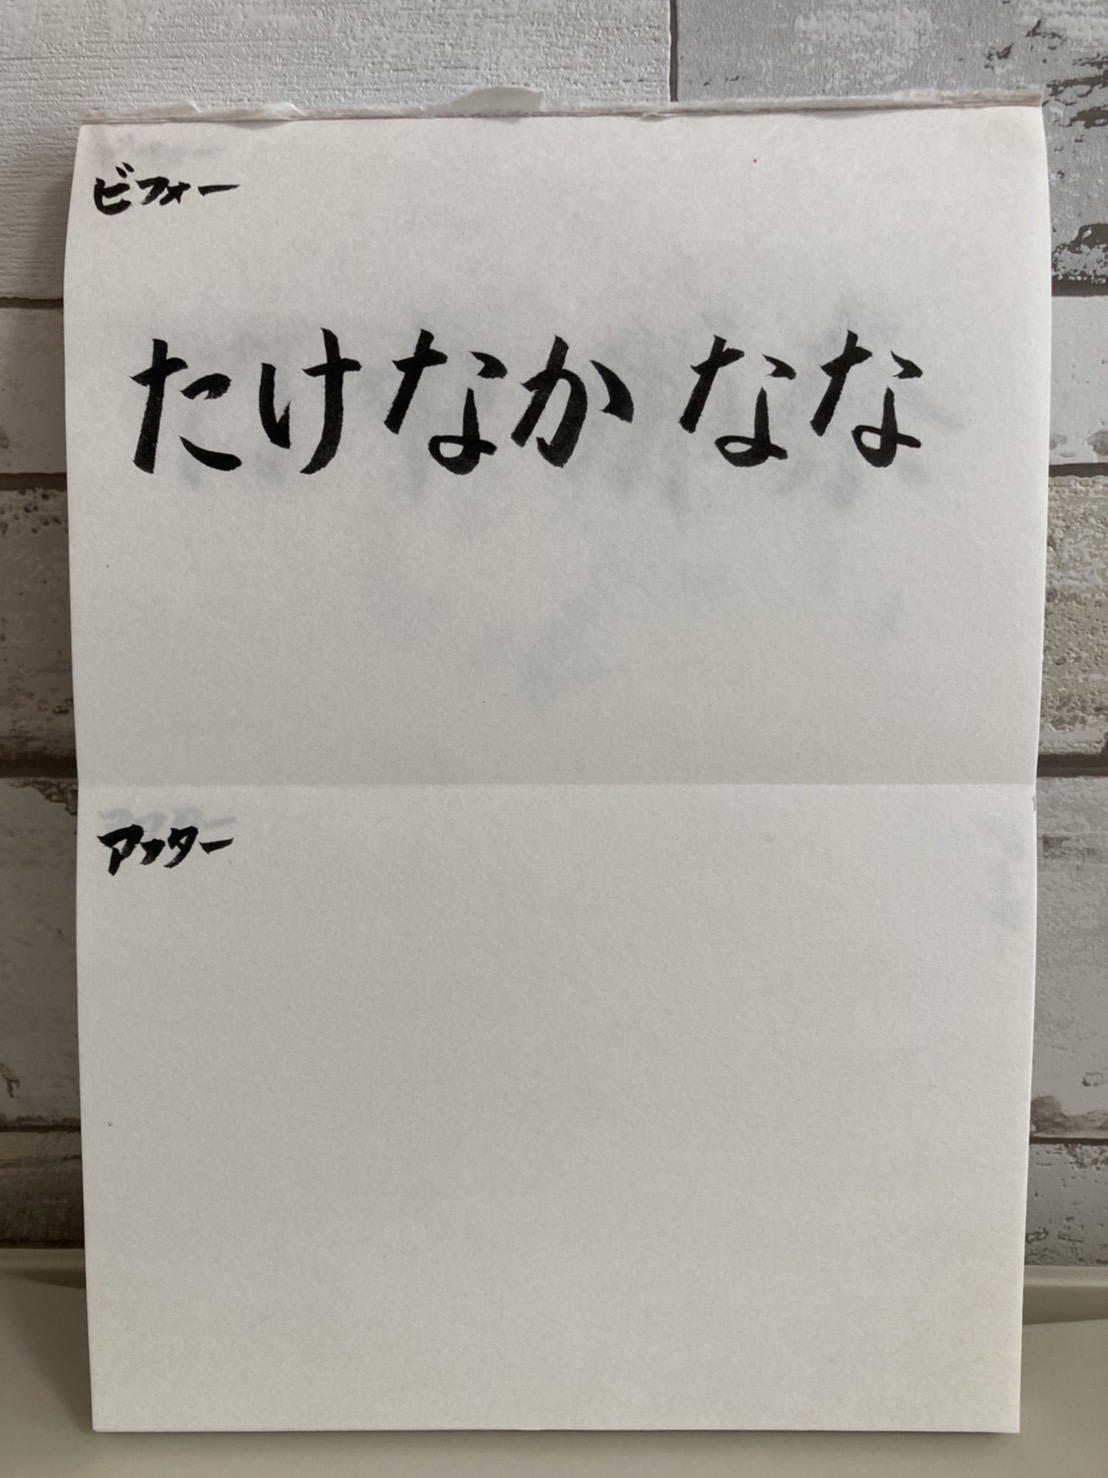 ビフォー
たけなか なな
アフター